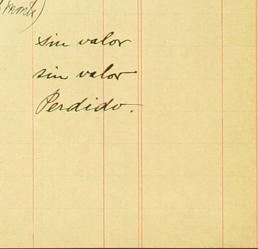 sin valor
sin valor
Perdido.